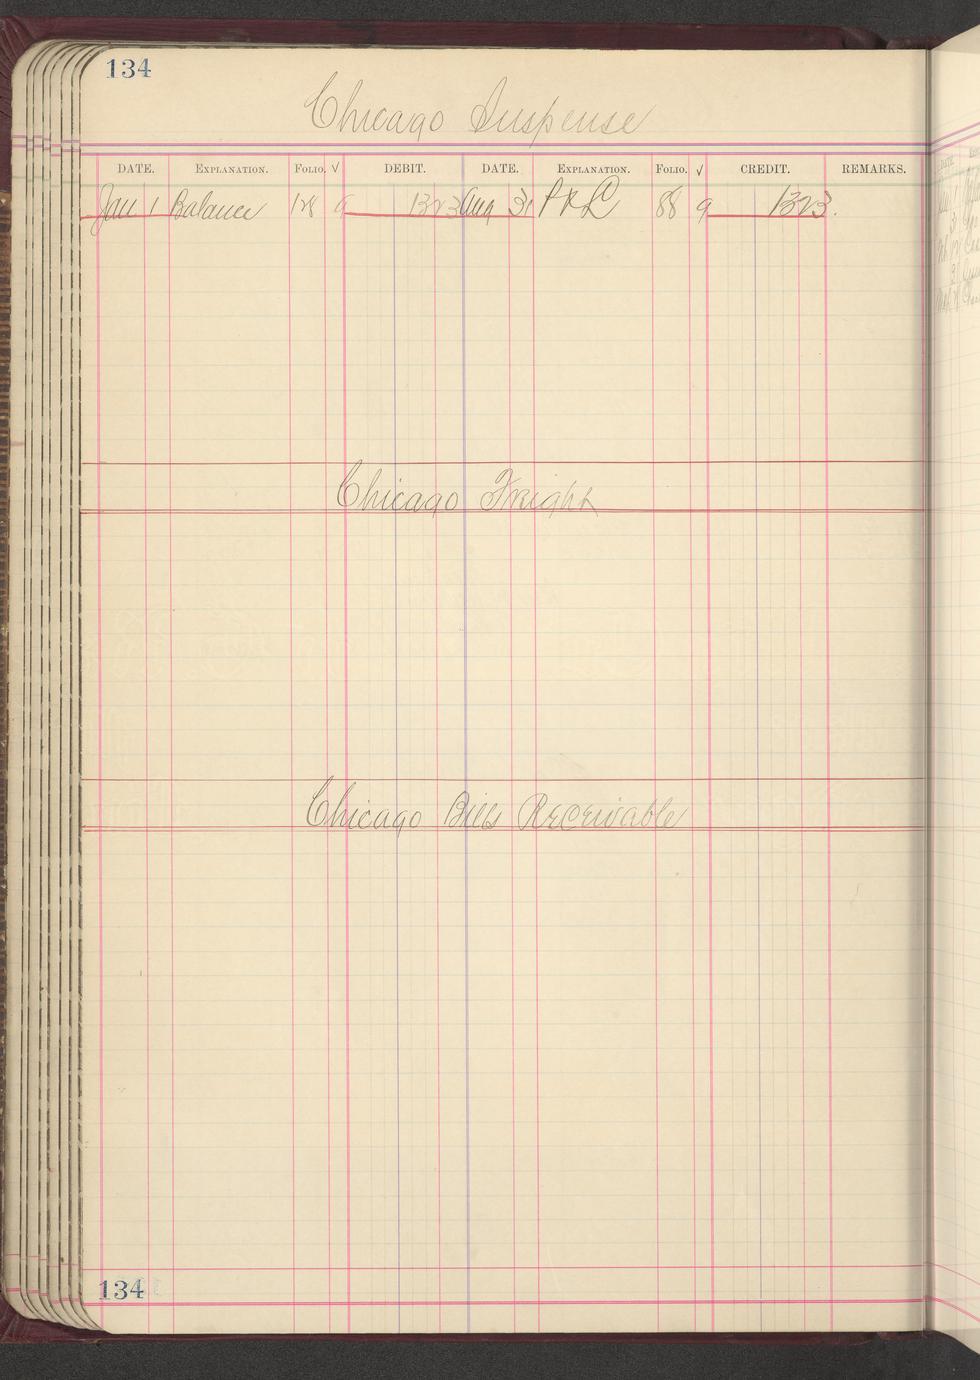 134
Chicago Suspense
DATE. EXPLANATION. FOLIO. √ DEBIT. DATE. EXPLANATION. FOLIO. √ CREDIT. REMARKS.
Jan 1 Balance 128 9 1323 Aug 31 P & L 88 9 1323.
Chicago Freight
Chicago Bills Receivable
134